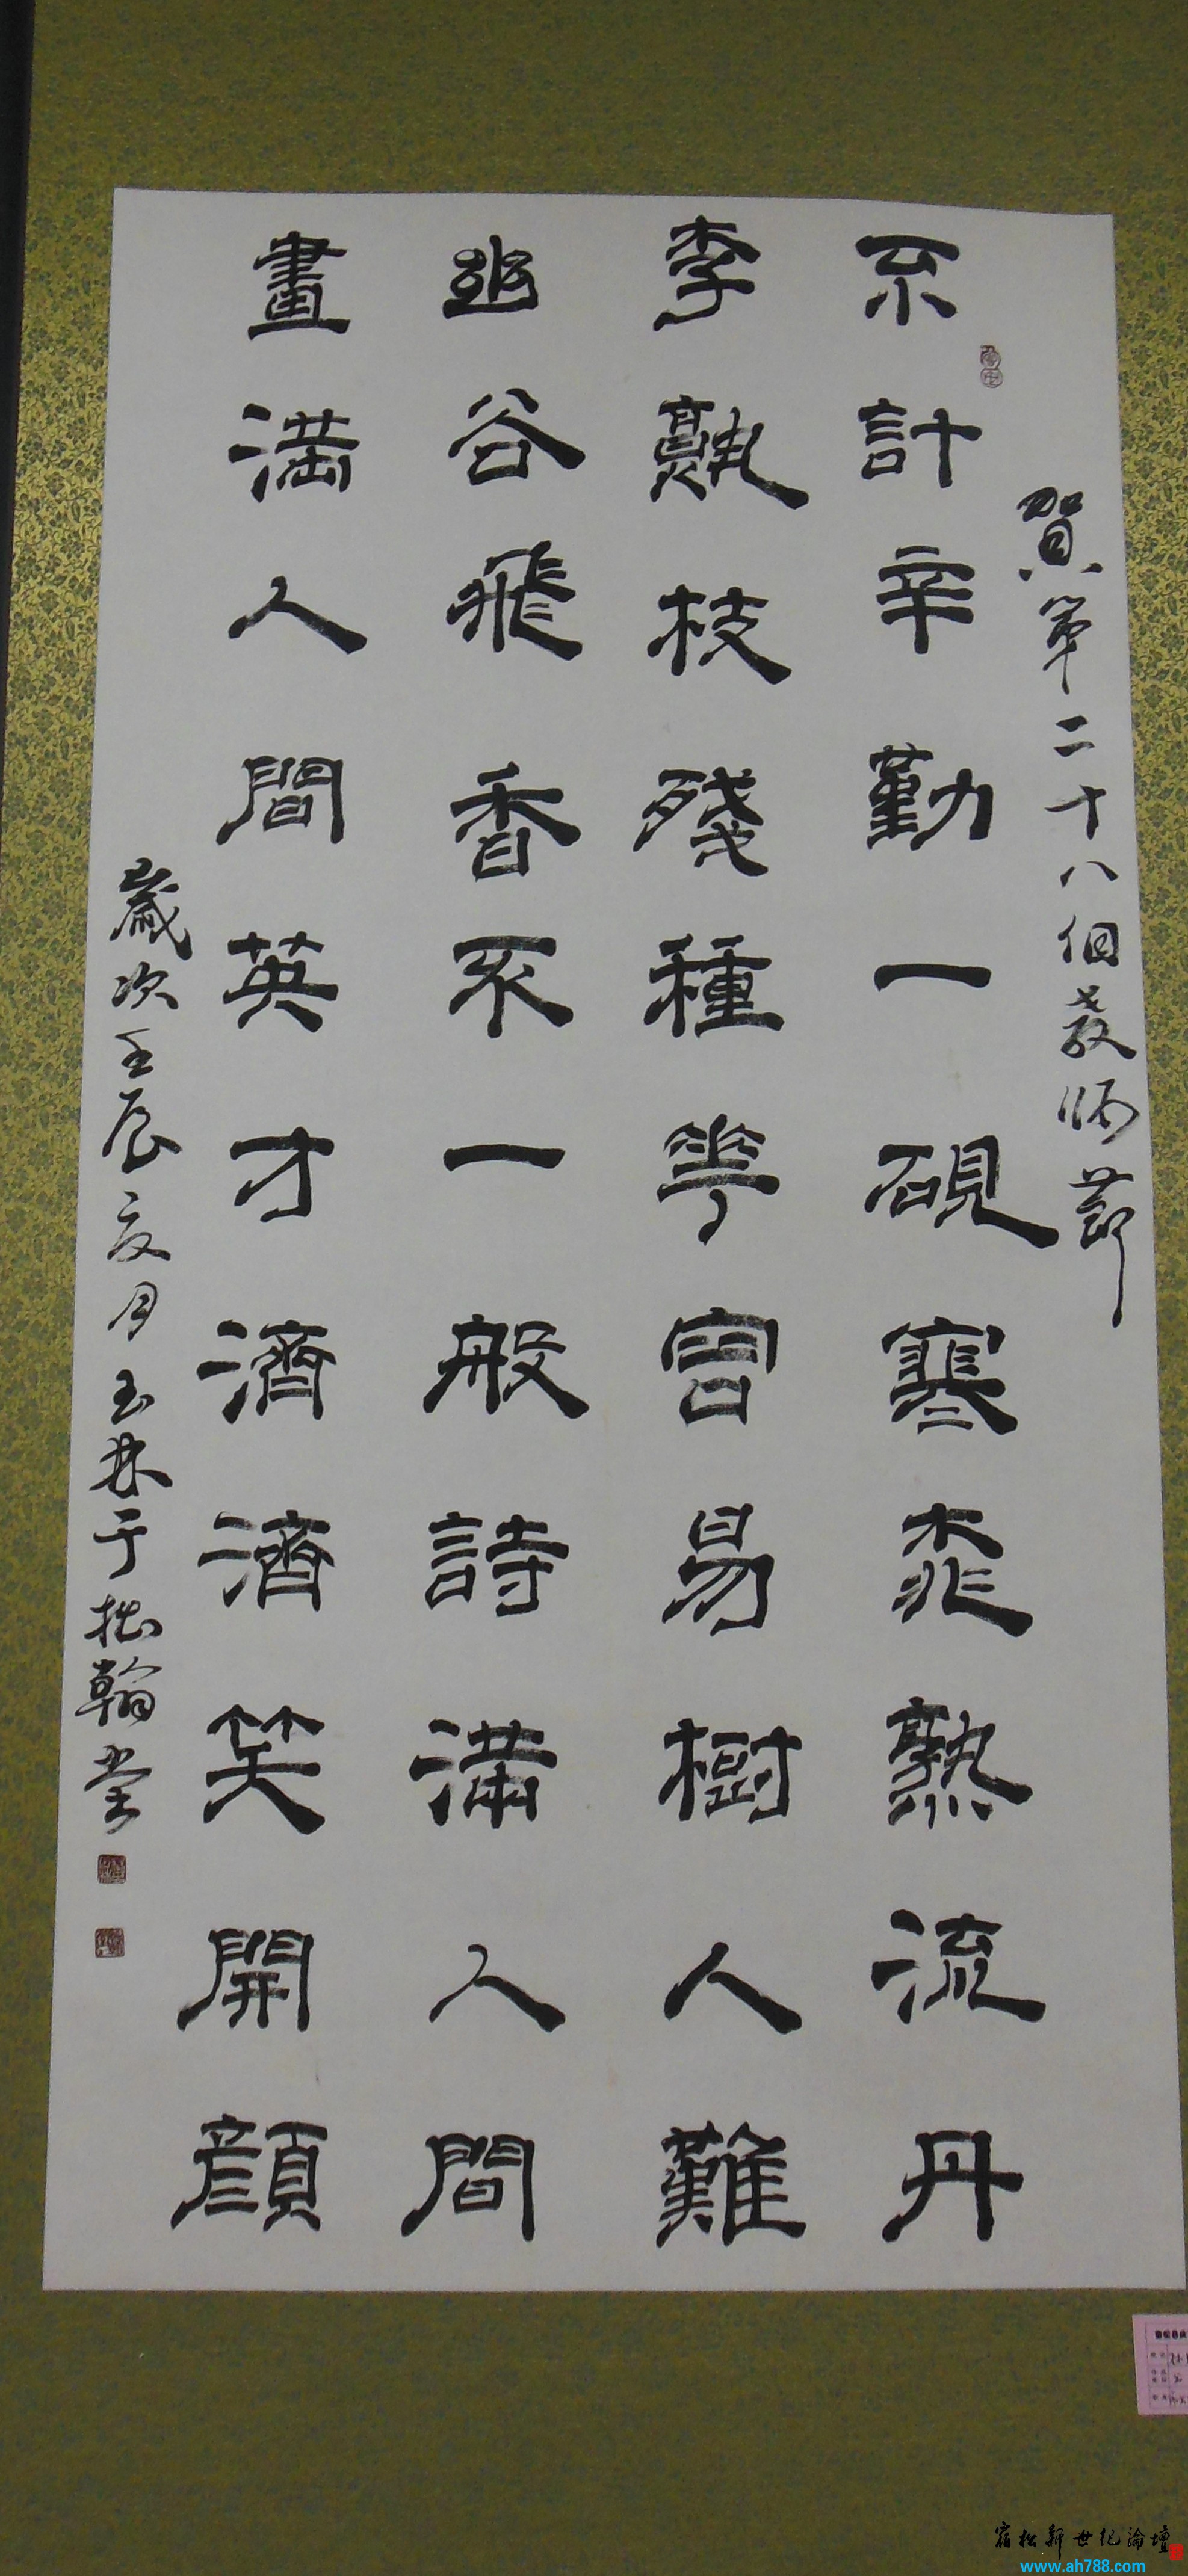 賀第二十八個教師節
不計辛勤一硯寒桃熟流丹
李熟枝殘種花容易樹人難
幽谷飛香不一般詩滿人間
畫滿人間英才濟濟笑開顏
歲次壬辰夏月玉林于拙翰堂
宿松新世紀論壇
www.ah788.com